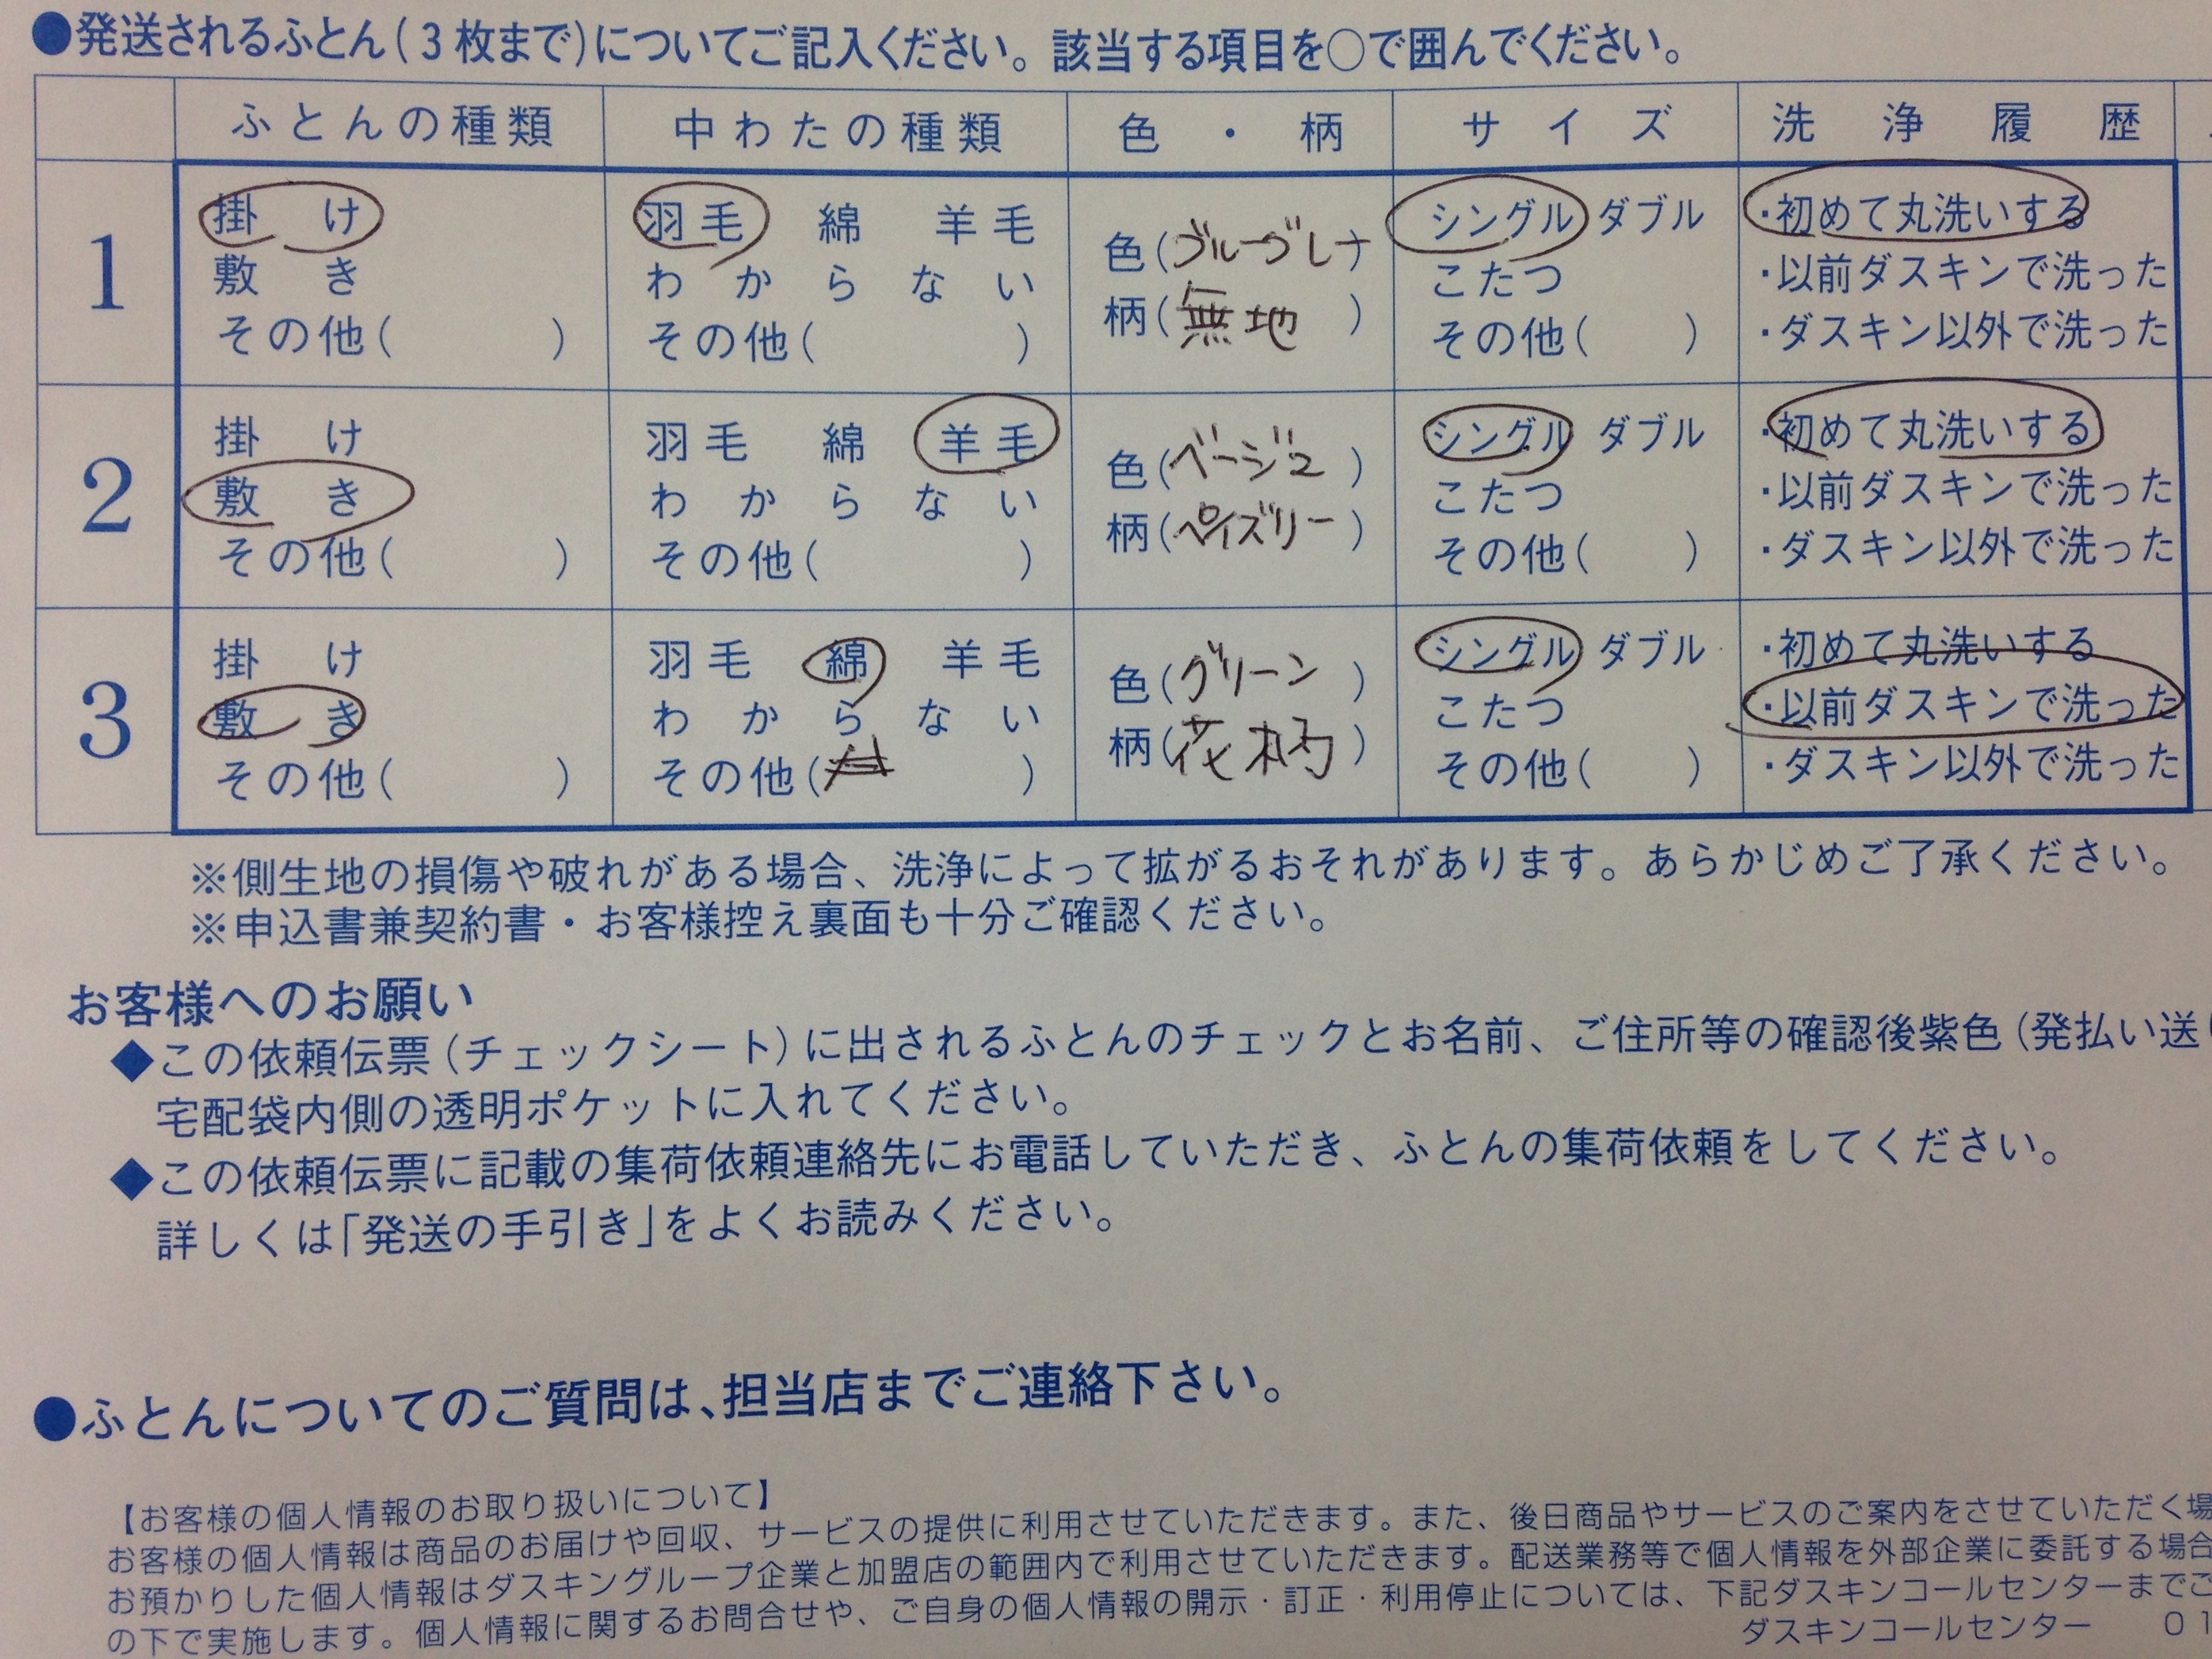 ●発送されるふとん(3枚まで)についてご記入ください。該当する項目を○で囲んでください。
ふとんの種類 中わたの種類 色・柄 サイズ 洗浄履歴
1
掛け 羽毛 綿 羊毛 シングル ダブル ・初めて丸洗いする
敷き わからない 色(ブルーグレー) こたつ ・以前ダスキンで洗った
その他( ) その他( ) 柄(無地) その他( ) ・ダスキン以外で洗った
2
掛け 羽毛 綿 羊毛 シングル ダブル ・初めて丸洗いする
敷き わからない 色(ベージュ) こたつ ・以前ダスキンで洗った
その他( ) その他( ) 柄(ペイズリー) その他( ) ・ダスキン以外で洗った
3
掛け 羽毛 綿 羊毛 シングル ダブル ・初めて丸洗いする
敷き わからない 色(グリーン) こたつ ・以前ダスキンで洗った
その他( ) その他( ) 柄(花柄) その他( ) ・ダスキン以外で洗った
※側生地の損傷や破れがある場合、洗浄によって拡がるおそれがあります。あらかじめご了承ください。
※申込書兼契約書・お客様控え裏面も十分ご確認ください。
お客様へのお願い
◆この依頼伝票(チェックシート)に出されるふとんのチェックとお名前、ご住所等の確認後紫色(発払い送
宅配袋内側の透明ポケットに入れてください。
◆この依頼伝票に記載の集荷依頼連絡先にお電話していただき、ふとんの集荷依頼をしてください。
詳しくは「発送の手引き」をよくお読みください。
●ふとんについてのご質問は、担当店までご連絡下さい。
【お客様の個人情報のお取り扱いについて】
お客様の個人情報は商品のお届けや回収、サービスの提供に利用させていただきます。また、後日商品やサービスのご案内をさせていただく場
お預かりした個人情報はダスキングループ企業と加盟店の範囲内で利用させていただきます。配送業務等で個人情報を外部企業に委託する場合
の下で実施します。個人情報に関するお問合せや、ご自身の個人情報の開示・訂正・利用停止については、下記ダスキンコールセンターまでご
ダスキンコールセンター 01